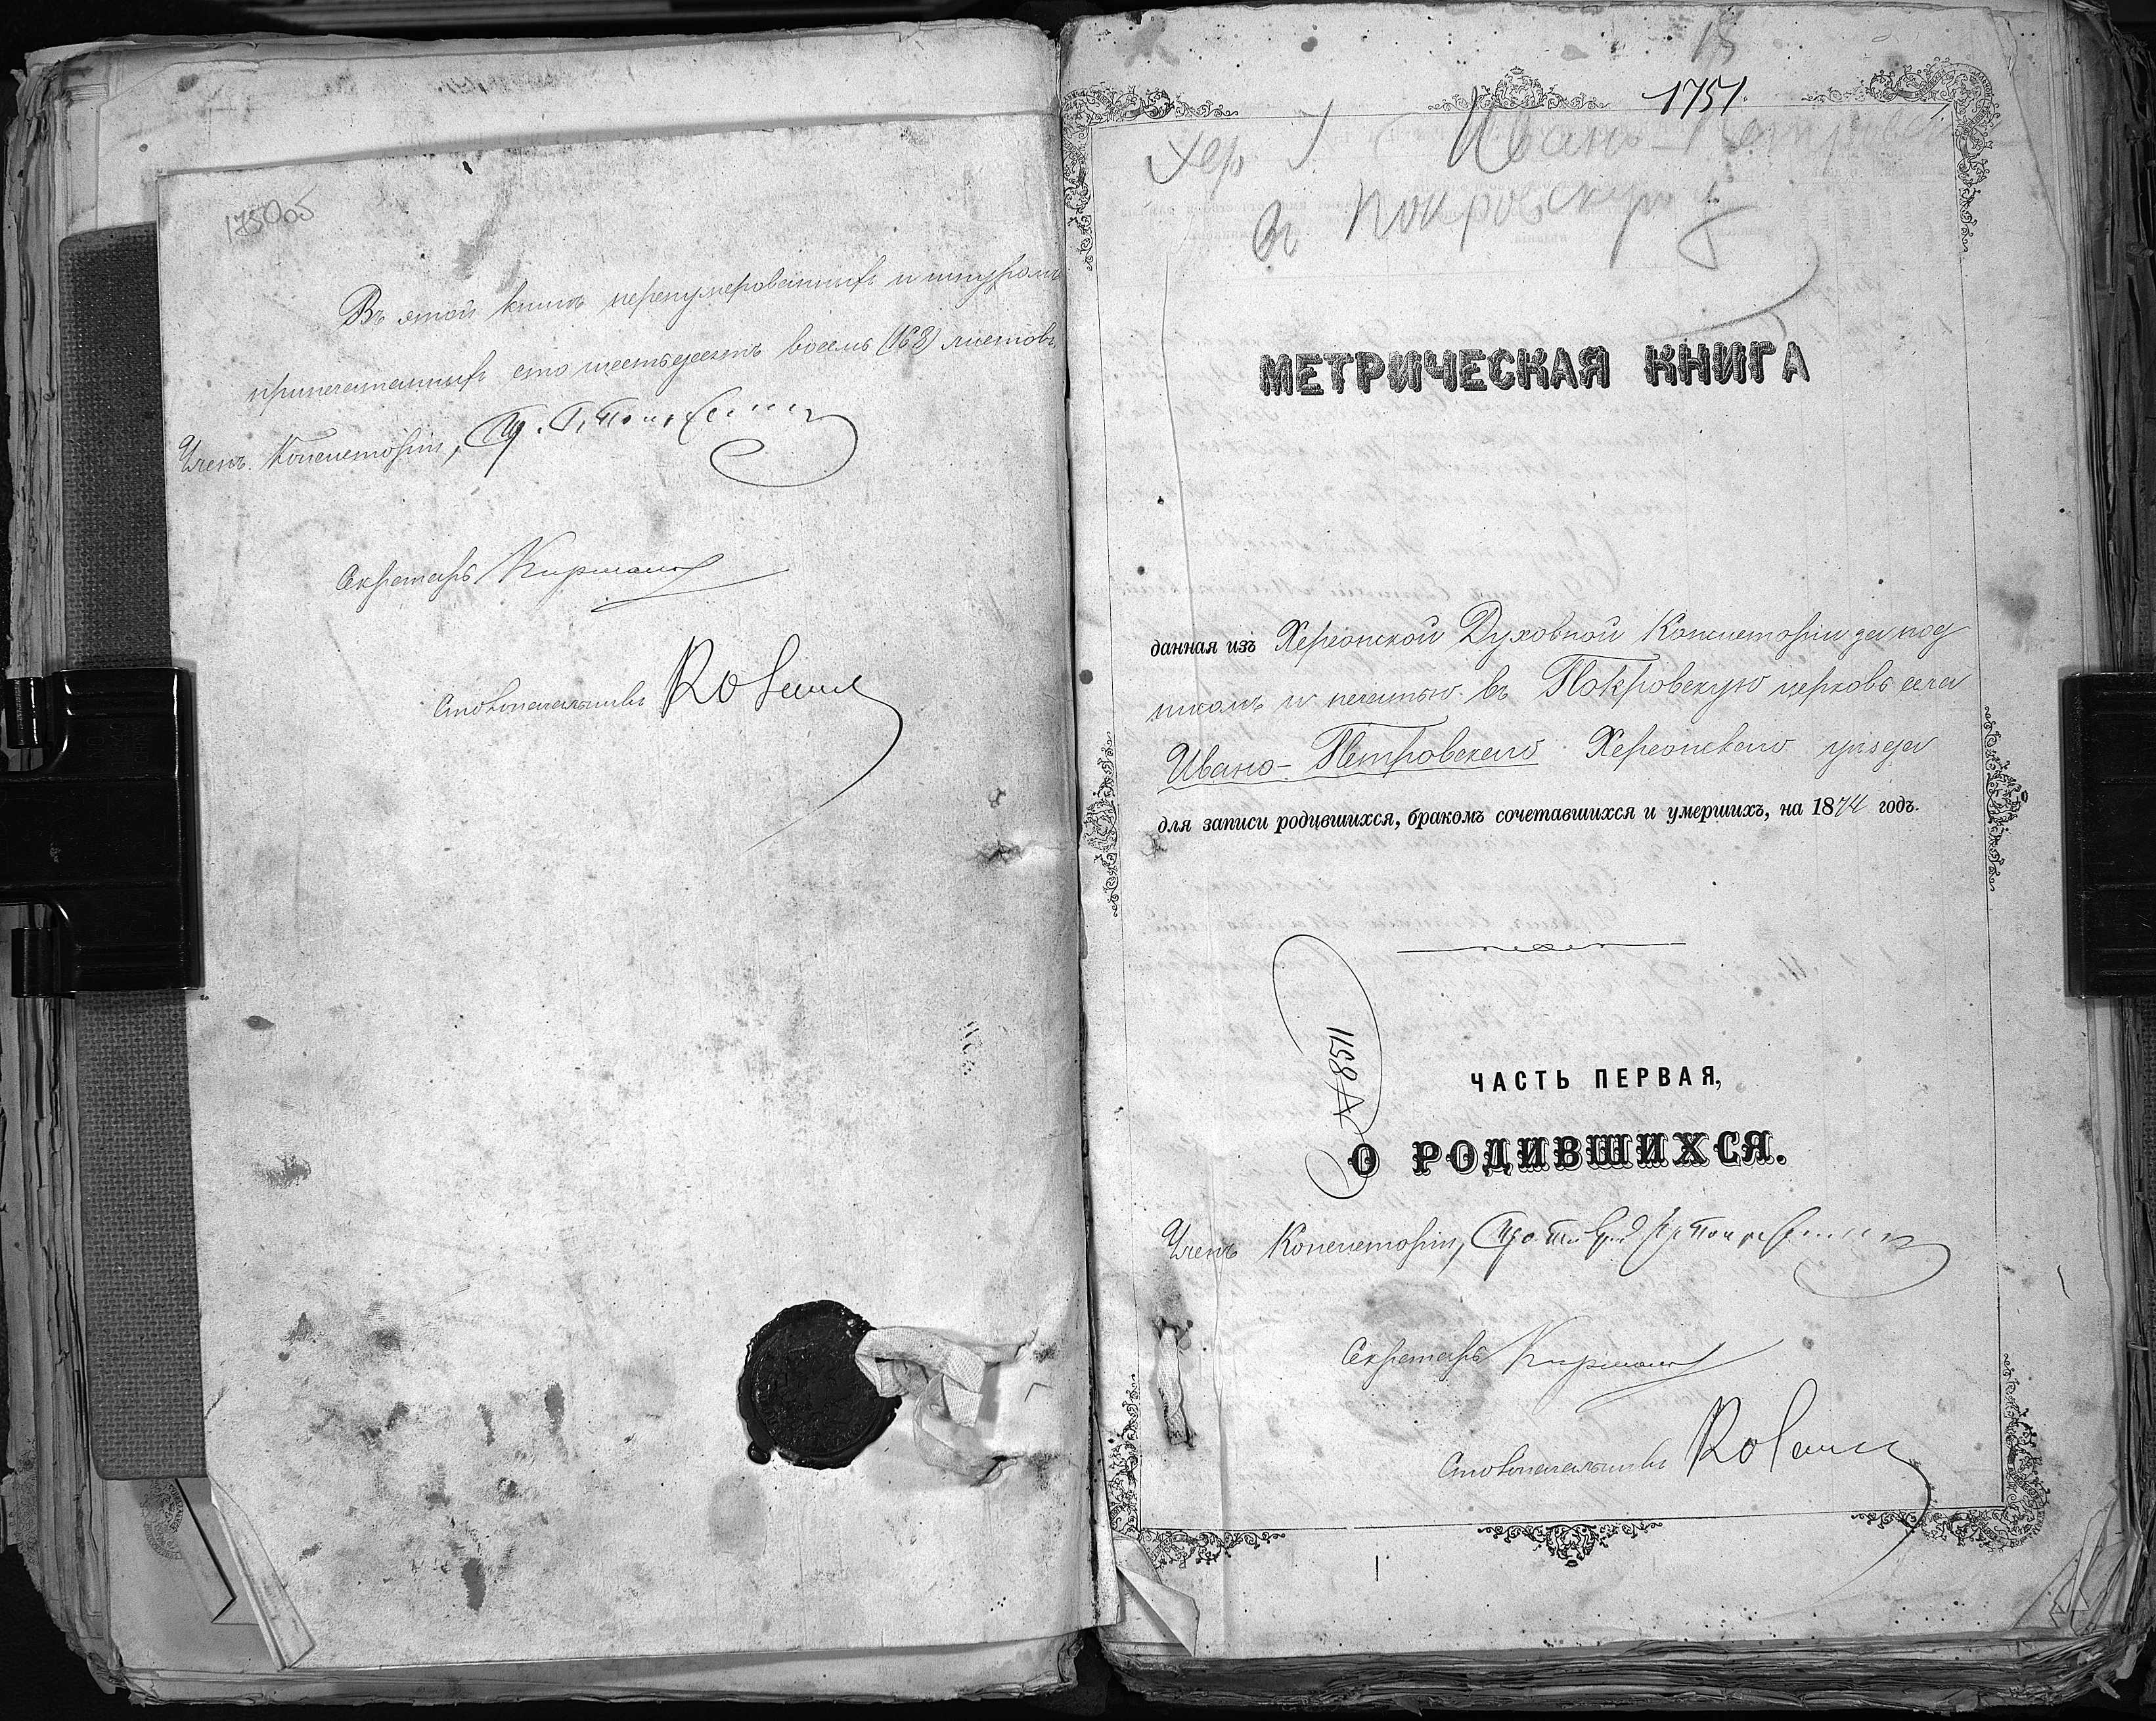 175об
Въ этой книгѣ перенумерованныхъ и шнуромъ
припечатанныхъ сто шестьдесятъ восемь (168) листовъ.
Членъ Консисторіи,
Секретарь
Столоначальникъ
18
1751.
Хер У Ивано-Петровск
въ Покровскую ц
МЕТРИЧЕСКАЯ КНИГА
данная изъ Херсонской Духовной Консисторіи за под
писомъ и печатью въ Покровскую церковь села
Ивано-Петровскаго Херсонскаго уѣзда
для записи родившихся, бракомъ сочетавшихся и умершихъ, на 1874 годъ.
№ 8511
ЧАСТЬ ПЕРВАЯ,
О РОДИВШИХСЯ.
Членъ Консисторіи,
Секретарь
Столоначальникъ